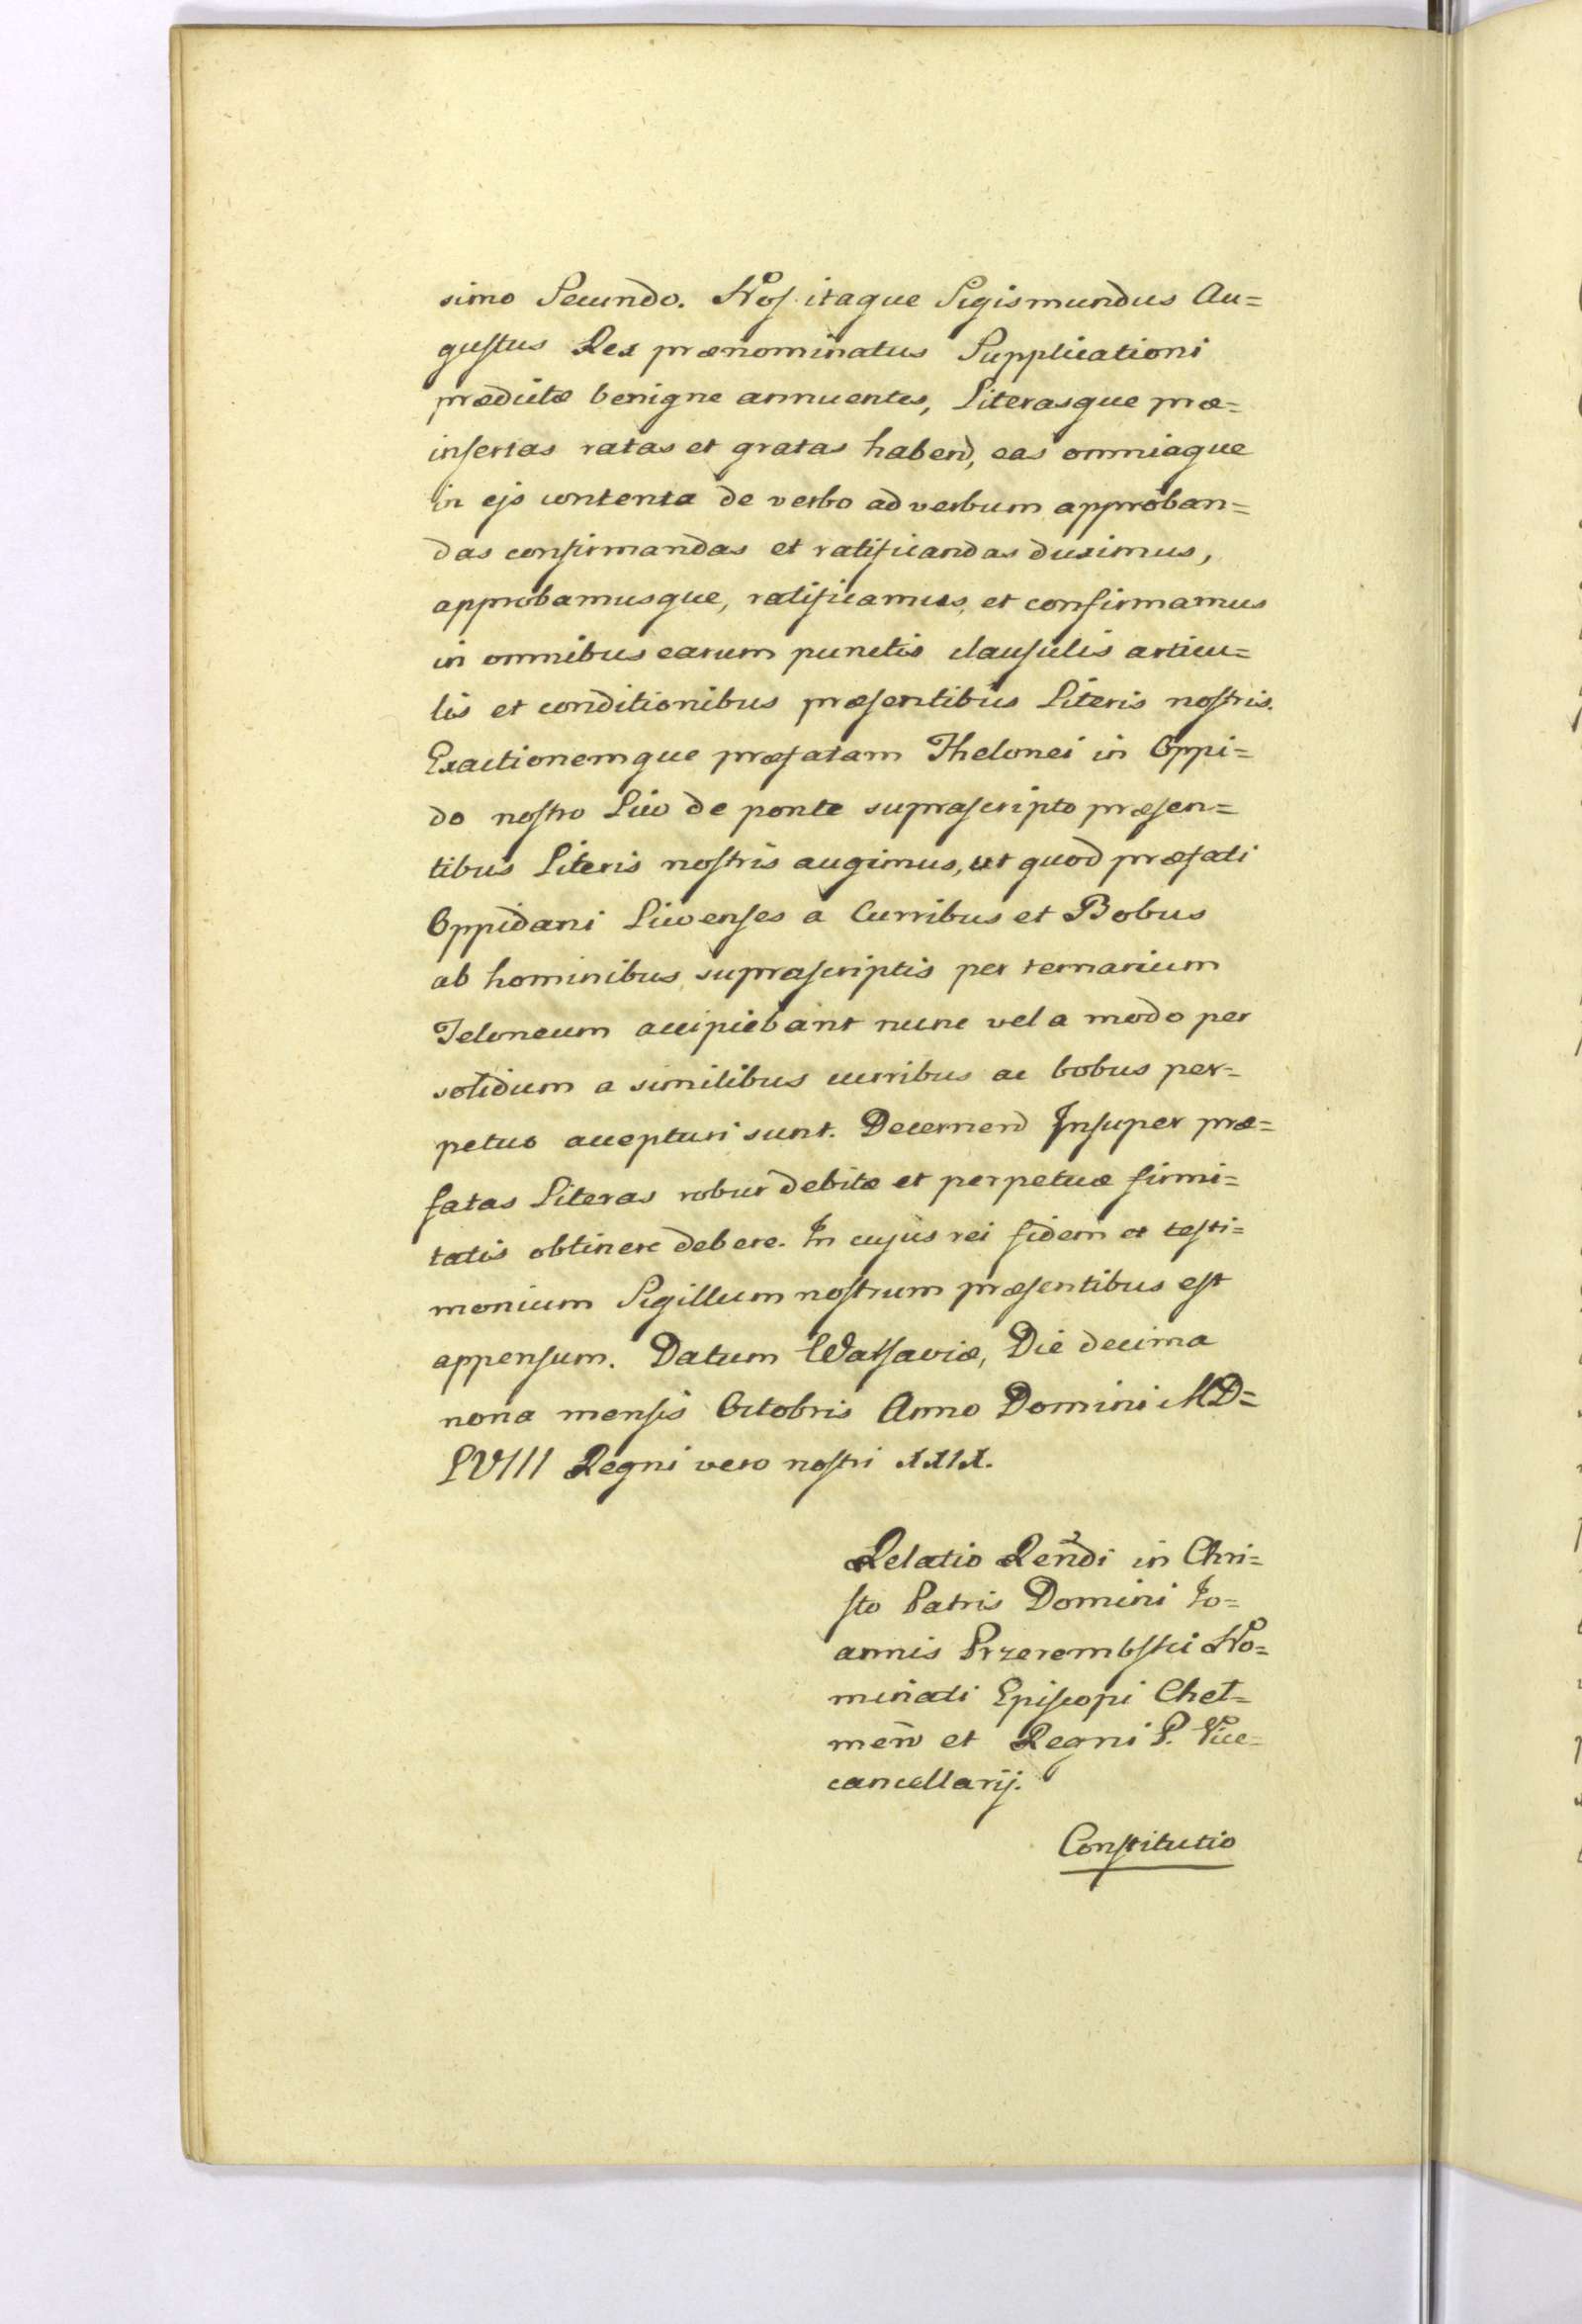 simo Secundo. Nos itaque Sigismundus Au=
gustus Rex prænominatus Supplicationi
prædictæ benigne annuentes, Literasque præ=
insertas ratas et gratas habend, eas omniaque
in ejs contenta de verbo ad verbum approban=
das confirmandas et ratificandas duximus,
approbamusque, ratificamus, et confirmamus
in omnibus earum punctis clausulis articu=
lis et conditionibus præsentibus Literis nostris.
Exactionemque præfatam Thelonei in Oppi=
do nostro Liw de ponte suprascripto præsen=
tibus Literis nostris augimus, ut quod præfati
Oppidani Liwenses a Curribus et Bobus
ab hominibus suprascriptis per ternarium
Teloneum accipiebant nunc vel a modo per
solidum a similibus curribus ac bobus per=
petuo accepturi sunt. Decernend Insuper præ=
fatas Literas robur debitæ et perpetuæ firmi=
tatis obtinere debere. In cujus rei fidem et testi=
monium Sigillum nostrum præsentibus est
appensum. Datum Warsaviæ, Die decima
nona mensis Octobris Anno Domini MD=
LVIII Regni vero nostri XXIX.
Relatio Rendi in Chri=
sto Patris Domini Jo=
annis Przerembski No=
minati Episcopi Cheł=
men et Regni P. Vice=
cancellarij.
Constitutio